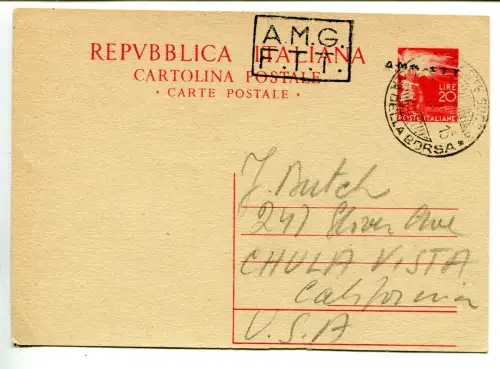 A.M.G.
F.T.T.
REPVBBLICA ITALIANA
CARTOLINA POSTALE
• CARTE POSTALE •
AMG-FTT
LIRE
20
POSTE ITALIANE
DELLA BORSA *
J. Butch
247 Ave
CHULA VISTA
California
U.S.A